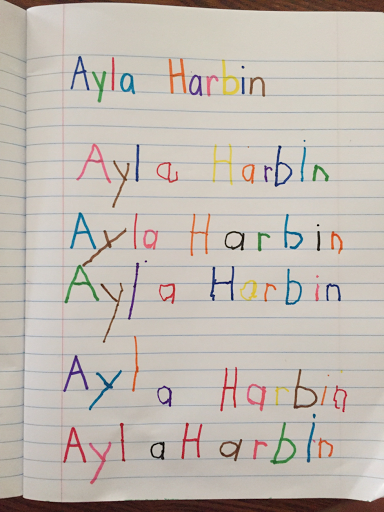 Ayla Harbin
Ayla Harbin
Ayla Harbin
Ayla Harbin
Ayla Harbin
Ayla Harbin